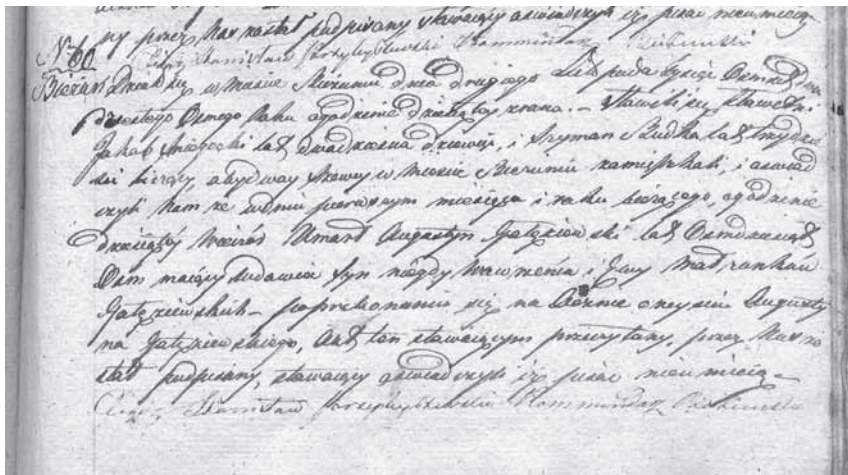 ny przez Nas został podpisany stawający oświadczyli iż pisać nieumieją
Xiądz Stanisław Kommendarz
N 60
Bieżuń Działo się w Mieście Bieżuniu dnia drugiego Listopada tysiąc Ośmset
dziestego Osmego Roku o godzinie dziesiątej zrana. – Stawili się Sławetni
Jakub lat dwadzieścia dziewięć, i Szyman Dudka lat trzydzie
ści liczący, abydway w Mieście Bieżuniu zamieszkali, i oświad
czyli Nam że wdniu pierwszym miesiąca i roku bieżącego, o godzinie
dziesiątej wieczór Umarł Augustyn lat Osmdziesiąt
Osm maiący wdowiec Syn niegdy Wawrzeńca i Ewy Małżonków
po przekonaniu się na Bócznie o zejściu Augusty
na Akt ten stawaiącym przeczytany, przez Nas zo
stał podpisany, stawaiący oświadczyli iż pisać nieumieią –
Xiądz Stanisław Kommendarz